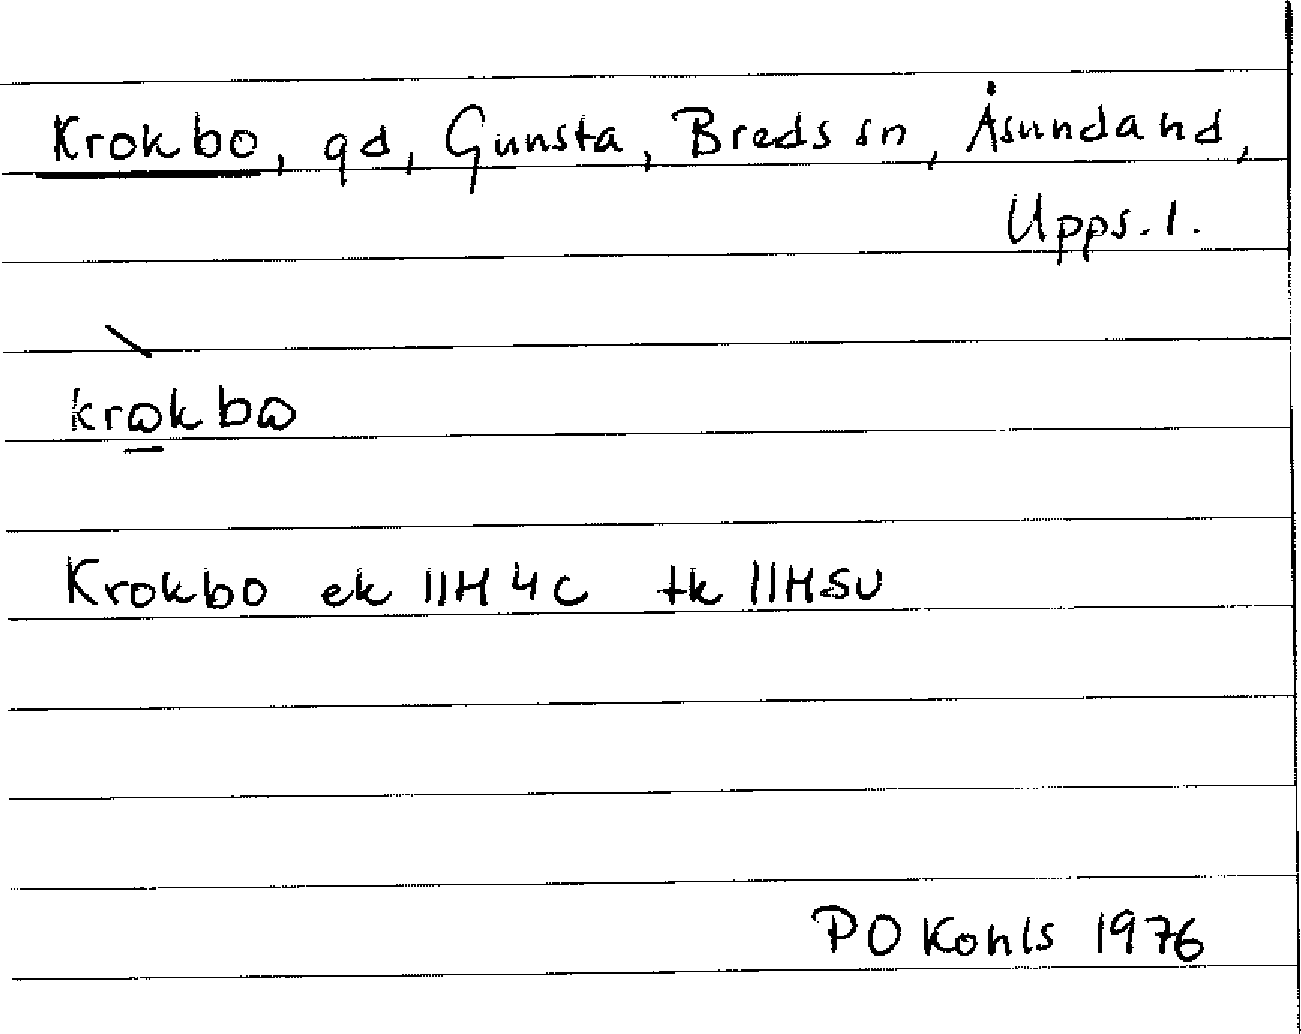 Krokbo, gd, Gunsta, Breds sn, Åsundahd,
Upps. l.
krɷkbɷ
Krokbo ek 11H 4c tk 11HSV
P O Kohls 1976